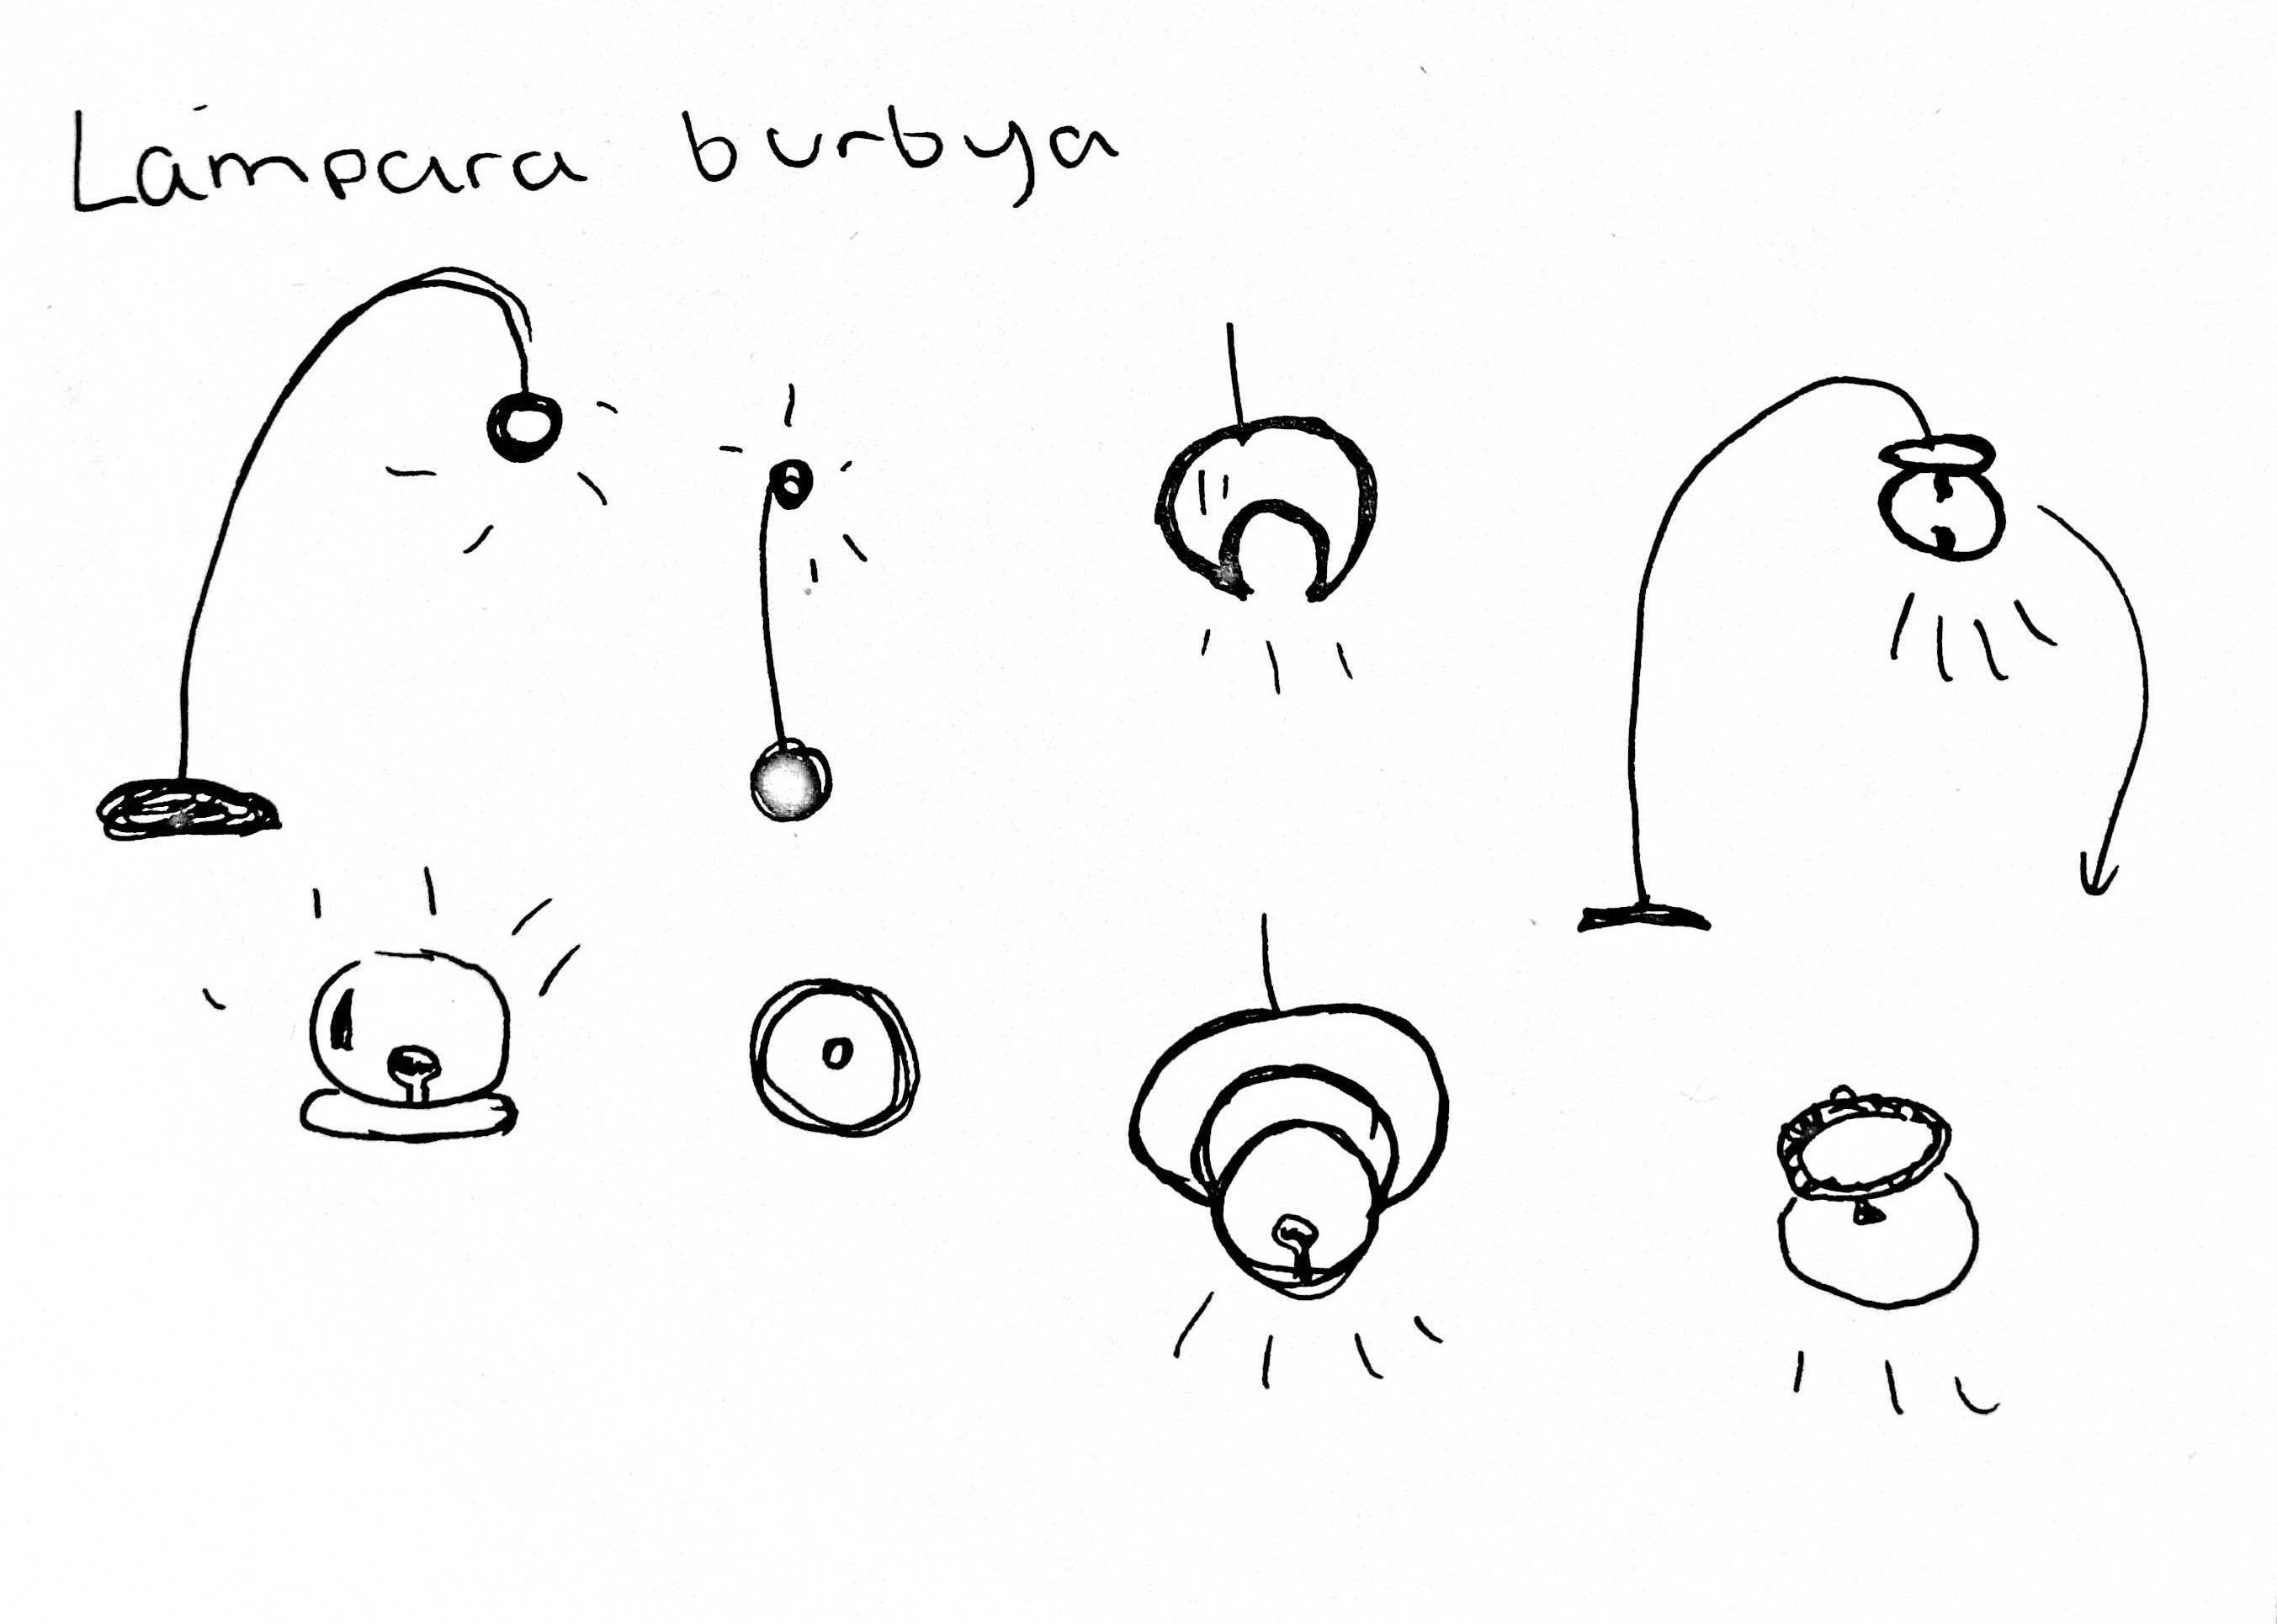 Lámpara burbya